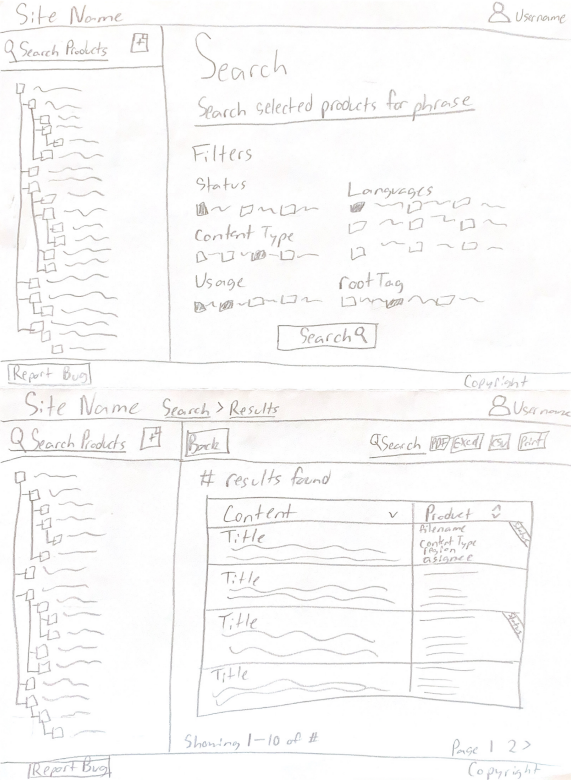 Site Name
Username
Search Products
Search
Search selected products for phrase
Filters
Status
Languages
Content Type
Usage
root Tag
Search
Report Bug
Copyright
Site Name Search > Results
Username
Search Products
Back
Search PDF Excel CSV Print
# results found
Content
Product
Title
Filename
Content Type
Version
assignee
Status
Title
Title
Status
Title
Showing 1-10 of #
Page 1 2 >
Report Bug
Copyright